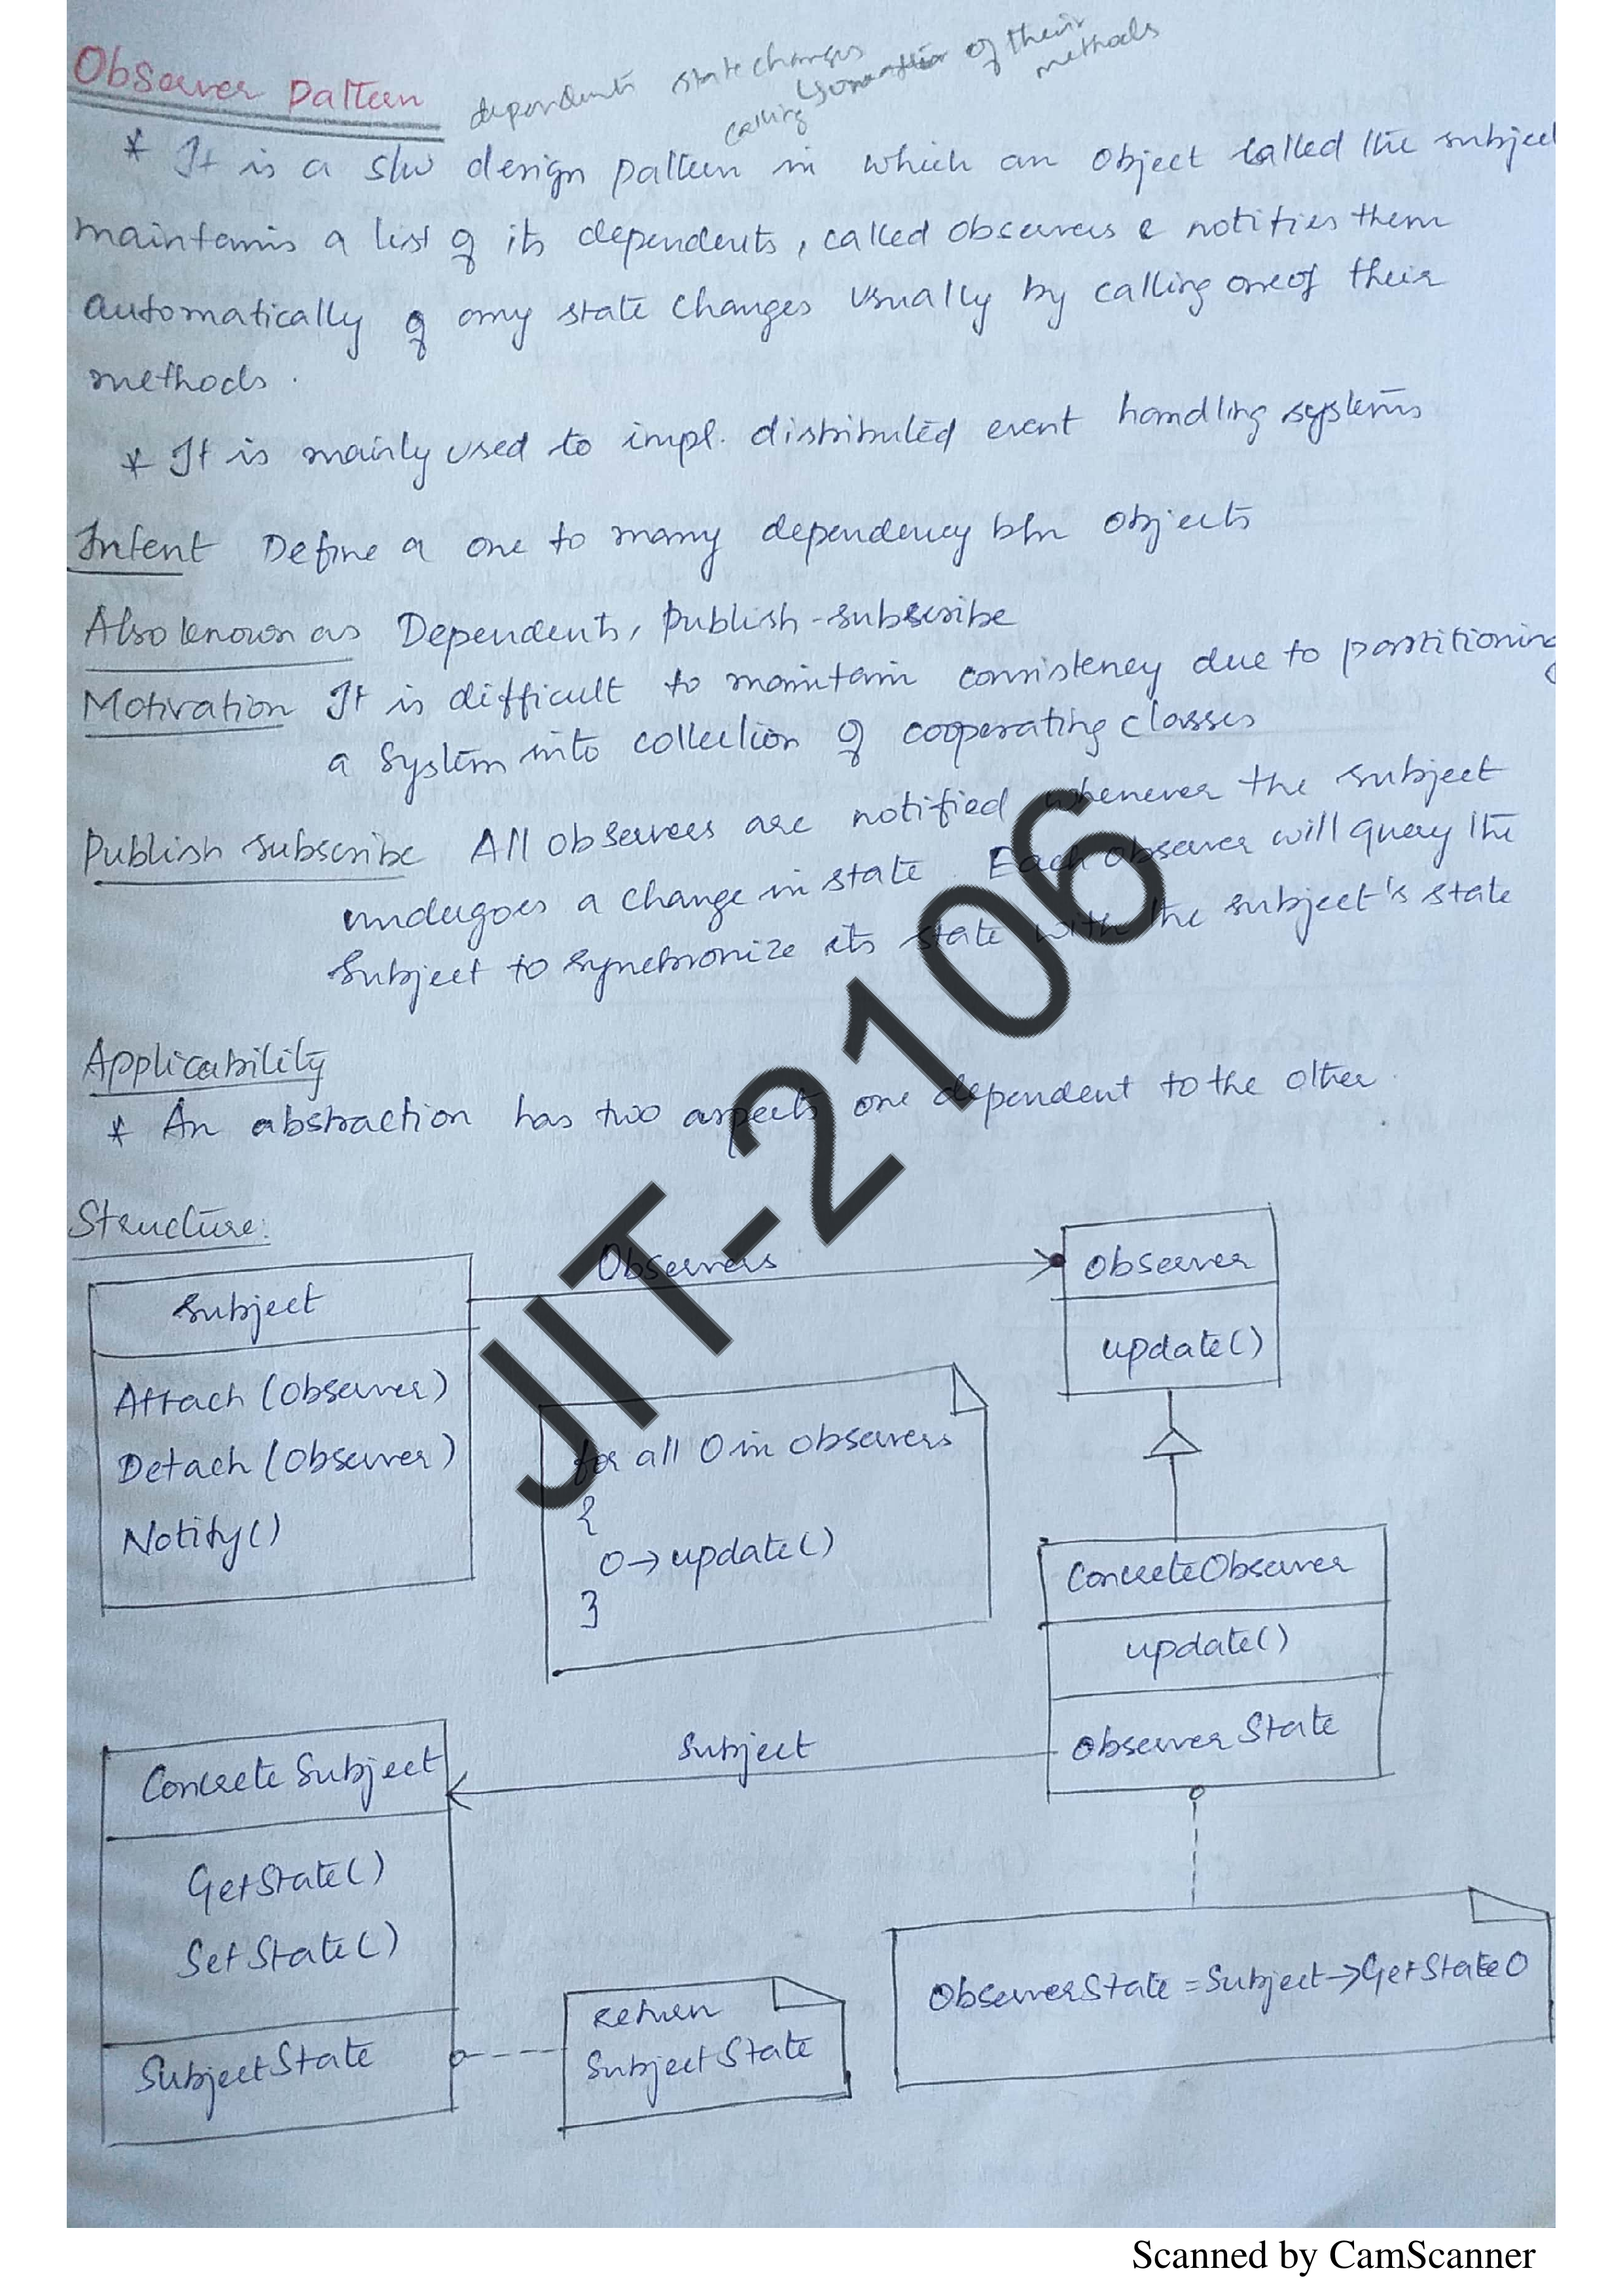 Observer Pattern
dependents state changes
calling of their
methods
* It is a s/w design pattern in which an object called the subject
maintains a list of its dependents, called observers & notifies them
automatically of any state changes usually by calling one of their
methods.
* It is mainly used to impl. distributed event handling systems
Intent Define a one to many dependency b/n objects
Also known as Dependents, Publish-Subscribe
Motivation It is difficult to maintain consistency due to partitioning
a system into collection of cooperating classes
Publish subscribe All observers are notified whenever the subject
undergoes a change in state. Each observer will query the
subject to synchronize its state with the subject's state
Applicability
* An abstraction has two aspects one dependent to the other.
Structure:
Subject
Attach (observer)
Detach (observer)
Notify()
Observers
Observer
update()
for all O in observers
{
O->update()
}
ConcreteObserver
update()
observerState
Subject
Concrete Subject
GetState()
SetState()
SubjectState
return
SubjectState
ObserverState = Subject->GetState()
JIT-2106
Scanned by CamScanner